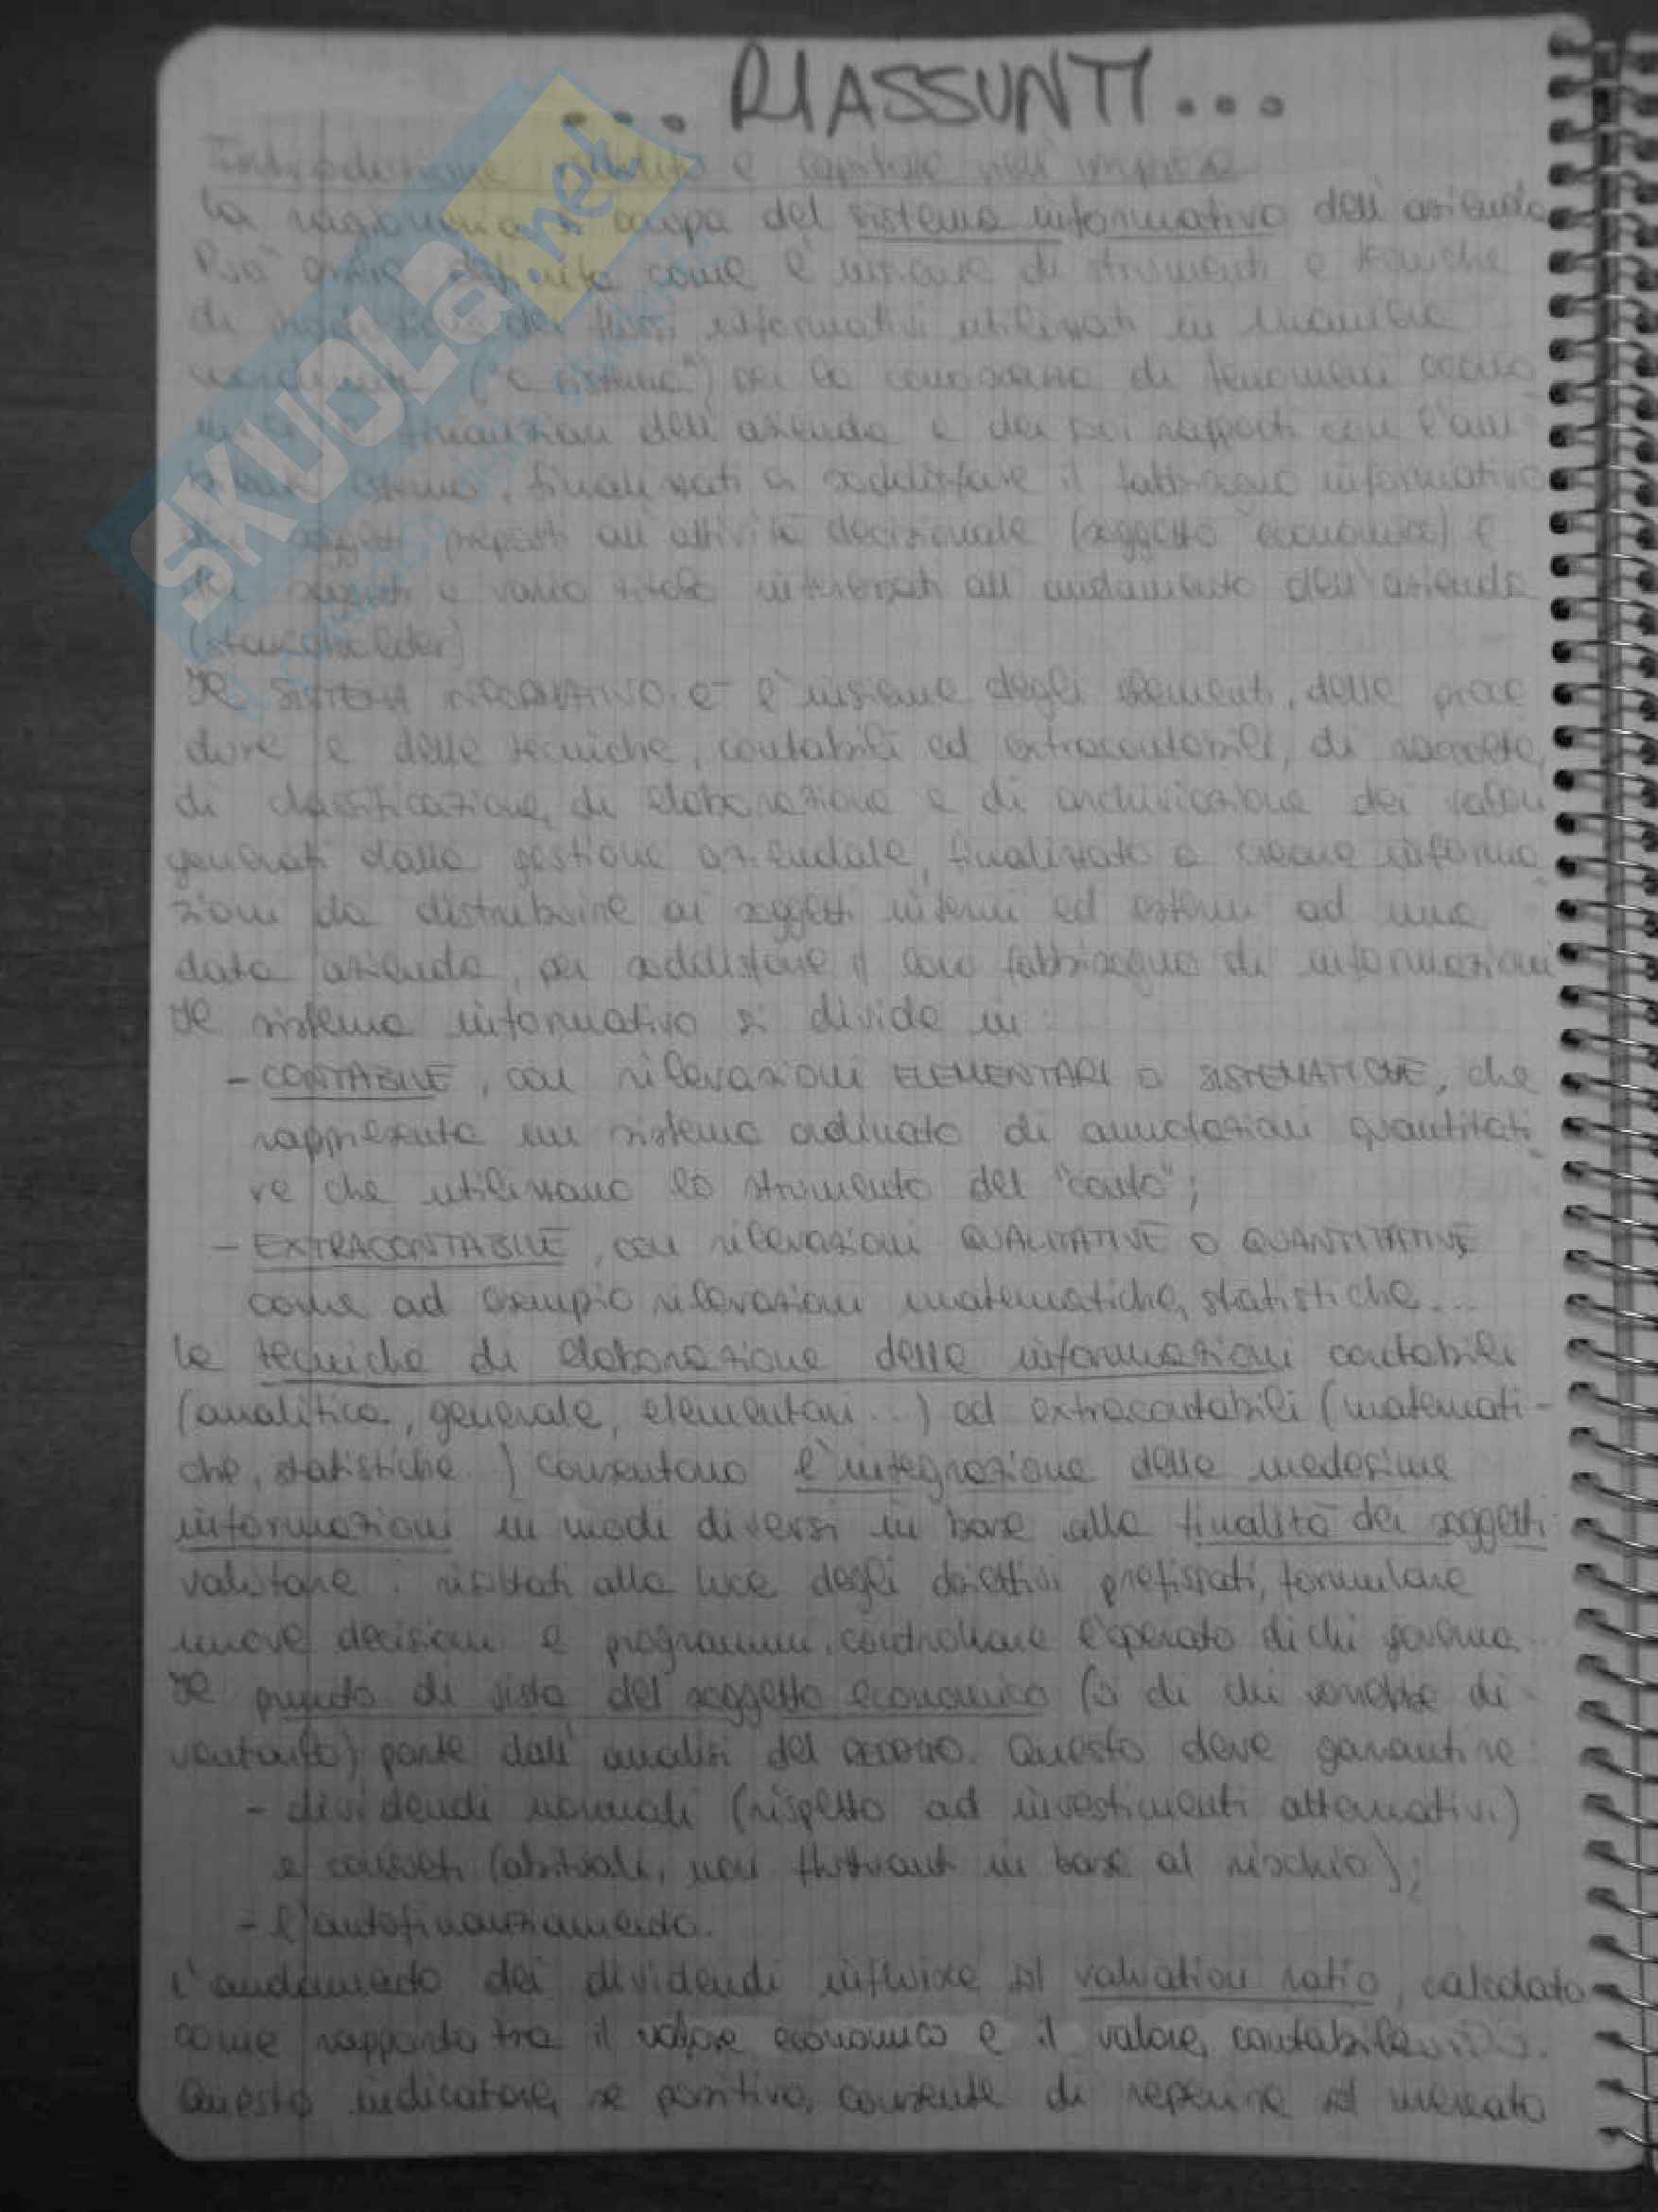 ... RIASSUNTI ...
Introduzione reddito e capitale nell'impresa
La ragioneria si occupa del sistema informativo dell'azienda
Può essere definita come l'insieme di strumenti e tecniche
di dei flussi informativi utilizzati in maniera
("a sistema") per la conoscenza di fenomeni econo
finanziari dell'azienda e dei suoi rapporti con l'am
biente esterno, finalizzati a soddisfare il fabbisogno informativo
dei soggetti preposti all'attività decisionale (soggetto economico) e
dei soggetti a vario titolo interessati all'andamento dell'azienda
(stakeholder)
Il SISTEMA INFORMATIVO è l'insieme degli elementi, delle proce
dure e delle tecniche, contabili ed extracontabili, di raccolta,
di classificazione, di elaborazione e di archiviazione dei valori
generati dalla gestione aziendale, finalizzato a creare informa
zioni da distribuire ai soggetti interni ed esterni ad una
data azienda, per soddisfare il loro fabbisogno di informazioni
Il sistema informativo si divide in:
- CONTABILE, con rilevazioni ELEMENTARI o SISTEMATICHE, che
rappresenta un sistema ordinato di annotazioni quantitati
ve che utilizzano lo strumento del "conto";
- EXTRACONTABILE, con rilevazioni QUALITATIVE o QUANTITATIVE
come ad esempio rilevazioni matematiche, statistiche....
Le tecniche di elaborazione delle informazioni contabili
(analitica, generale, elementari...) ed extracontabili (matemati-
che, statistiche..) consentono l'integrazione delle medesime
informazioni in modi diversi in base alla finalità dei soggetti:
valutare i risultati alla luce degli obiettivi prefissati, formulare
nuove decisioni e programmi, controllare l'operato di chi governa...
Il punto di vista del soggetto economico (o di chi vorrebbe di
ventarlo) parte dall'analisi del Questo deve garantire:
- dividendi normali (rispetto ad investimenti alternativi)
e costanti (abituali, non fluttuanti in base al rischio);
- l'autofinanziamento.
L'andamento dei dividendi influisce sul valuation ratio, calcolato
come rapporto tra il valore economico e il valore contabile
Questo indicatore, se positivo, consente di reperire sul mercato
SKUOLa.net